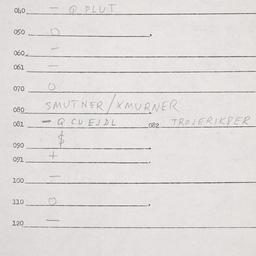 040 — Q PLUT
050 O
060 —
061 —
070 O
SMUTNER/XMURNER
081 — Q CUEJDL 082 TROJERIKPER
090 $
091 +
100 —
110 O
120 —